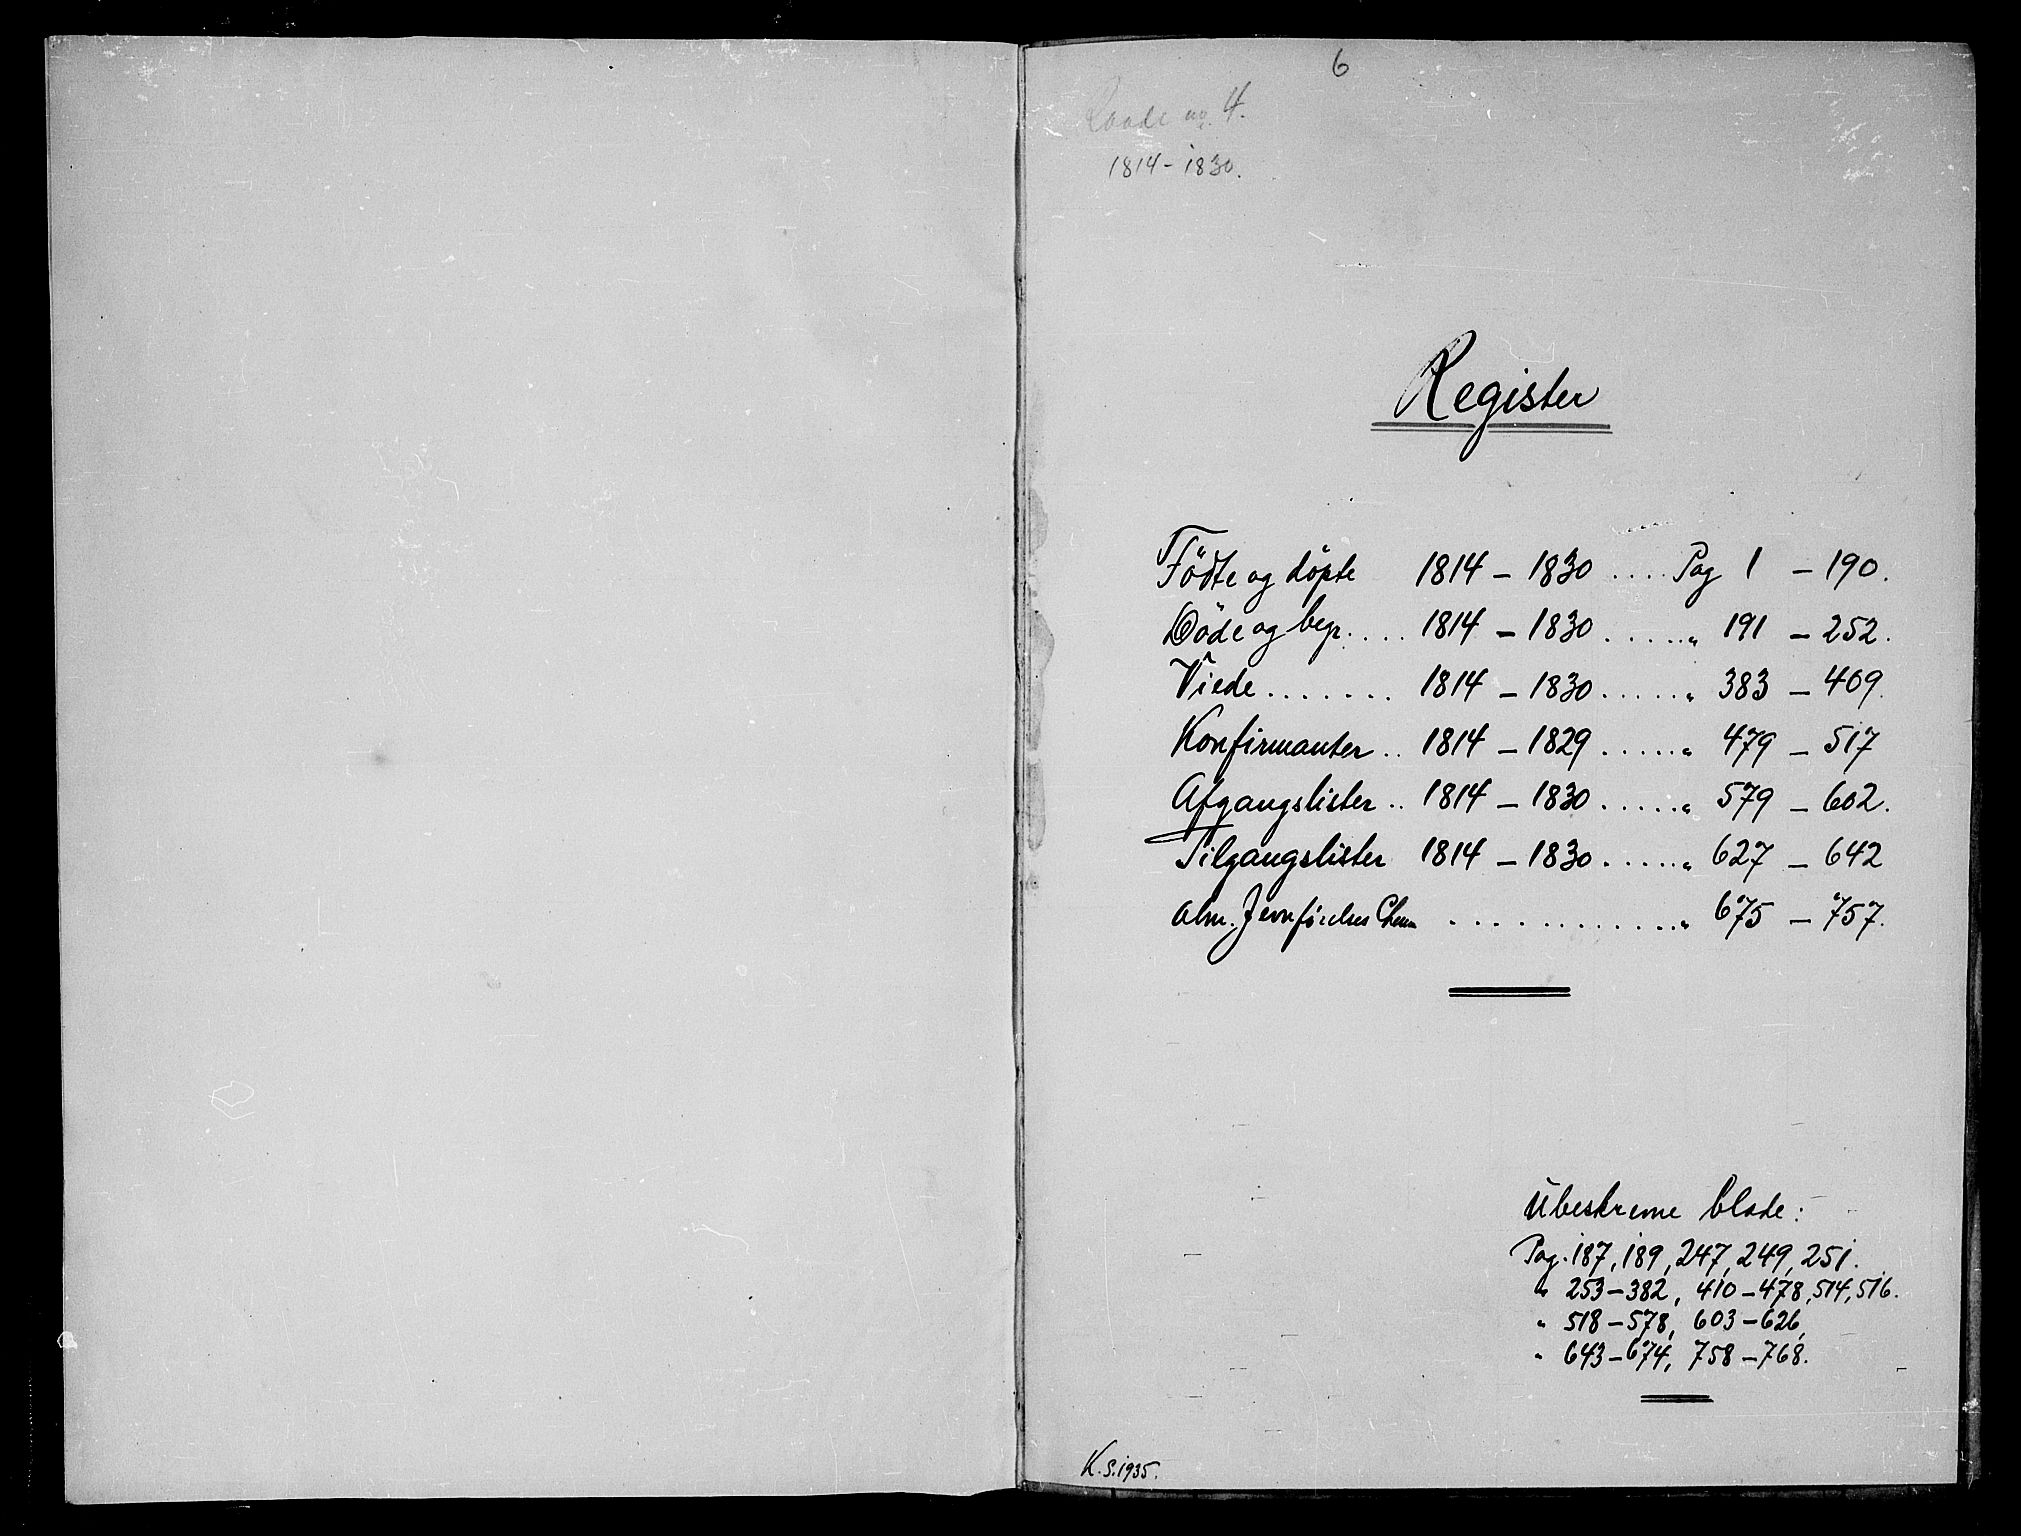 6
Raade nr. 4.
1814 - 1830.
Register
Födte og döpte 1814 - 1830 .... Pag 1 - 190.
Döde og begr. .... 1814 - 1830 ...... " 191 - 252.
Viede ....... 1814 - 1830 ...... " 383 - 409.
Konfirmanter .. 1814 - 1829 ...... " 479 - 517
Afgangslister .. 1814 - 1830 ...... " 579 - 602.
Tilgangslister 1814 - 1830 ...... " 627 - 642
Alm. Jevnförelses ............. " 675 - 757.
Ubeskrevne blade:
Pag. 187, 189, 247, 249, 251.
" 253-382, 410-478, 514, 516.
" 518-578, 603-626,
" 643-674, 758-768.
K.S. 1935.